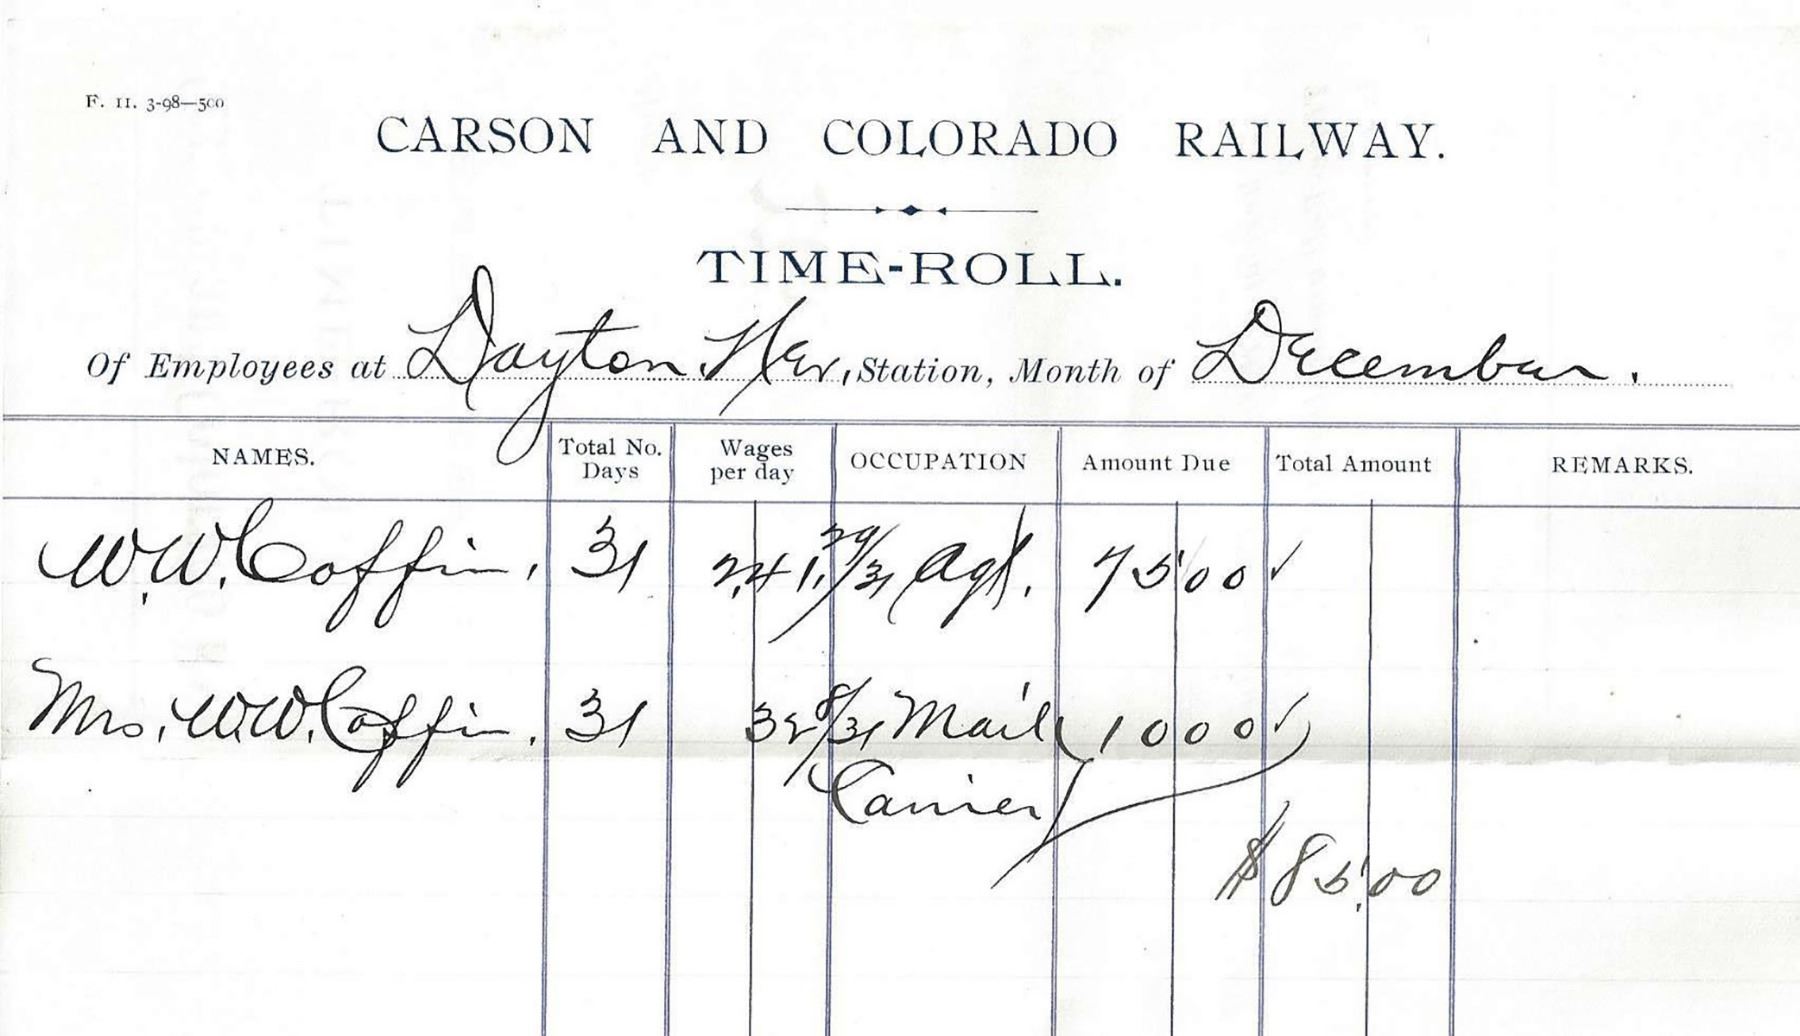 F. 11. 3-98—500
CARSON AND COLORADO RAILWAY.
TIME-ROLL.
Of Employees at Dayton. Nev, Station, Month of December.
NAMES. Total No. Days Wages per day OCCUPATION Amount Due Total Amount REMARKS.
W. W. Coffin, 31 2.41 29/31 Agt. 75 00 ✓
Mrs. W. W. Coffin, 31 32 8/31 Mail 10 00 ✓
Carrier
$85.00